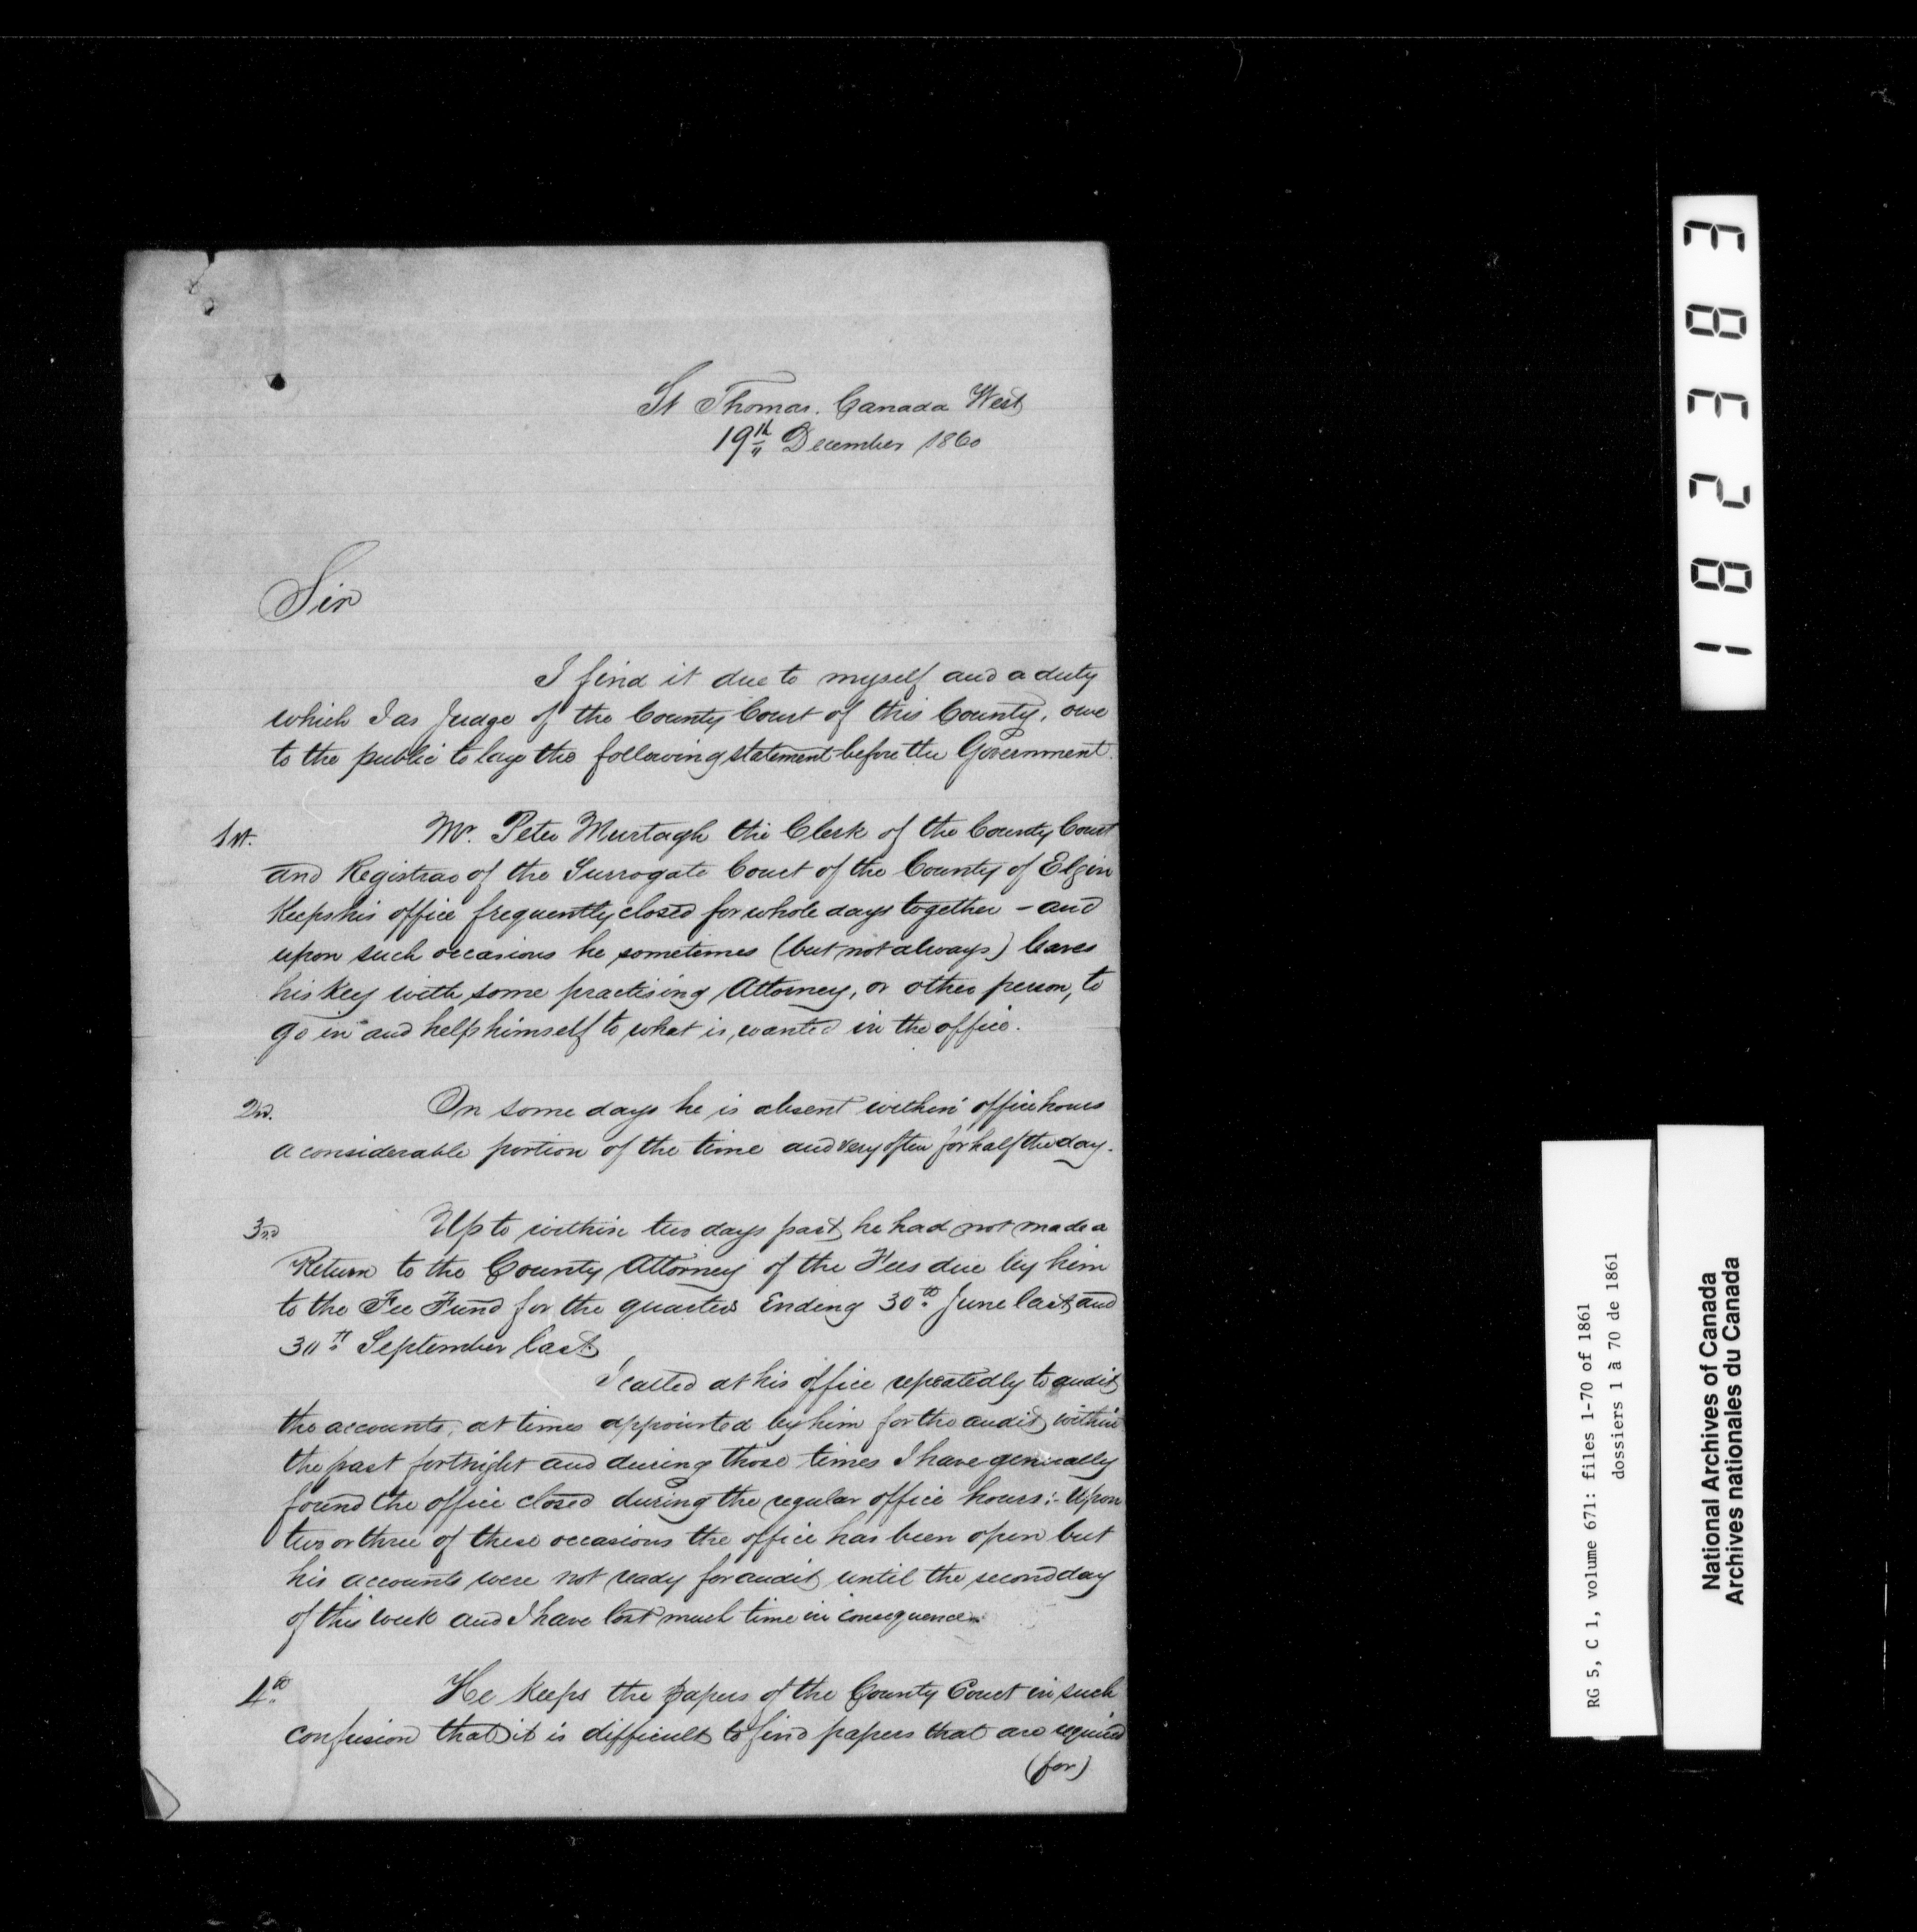 St Thomas. Canada West
19th December 1860
Sir
I find it due to myself and a duty
which I as Judge of the County Court of this County, owe
to the public to lay the following statement before the Government.
1st. Mr. Peter Murtagh the Clerk of the County Court
and Registrar of the Surrogate Court of the County of Elgin
Keeps his office frequently closed for whole days together - and
upon such occasions he sometimes (but not always) leaves
his Key with some practising Attorney, or other person, to
go in and help himself to what is wanted in the office.
2nd. On some days he is absent within office hours
a considerable portion of the time and very often for half the day.
3rd Up to within two days past he had not made a
Return to the County Attorney of the Fees due by him
to the Fee Fund for the quarters Ending 30th June last and
30th September last.
I called at his office repeatedly to audit
the accounts, at times appointed by him for the audit within
the past fortnight and during those times I have generally
found the office closed during the regular office hours:- Upon
two or three of these occasions the office has been open but
his accounts were not ready for audit until the second day
of this week and I have lost much time in consequence.
4th He Keeps the papers of the County Court in such
confusion that it is difficult to find papers that are required
(for)
183283
RG 5, C 1, volume 671: files 1-70 of 1861
dossiers 1 à 70 de 1861
National Archives of Canada
Archives nationales du Canada